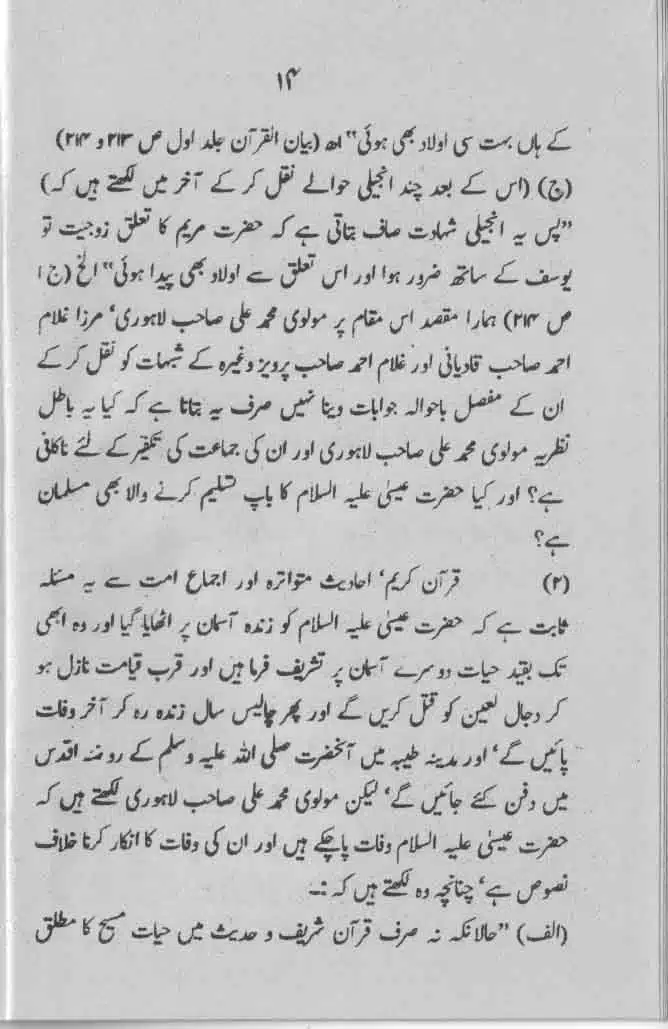 ۱۴
کے ہاں بہت سی اولاد بھی ہوئی" اھ (بیان القرآن جلد اول ص ۲۱۳ و ۲۱۴)
(ج) (اس کے بعد چند انجیلی حوالے نقل کر کے آخر میں لکھتے ہیں کہ)
"پس یہ انجیلی شہادت صاف بتاتی ہے کہ حضرت مریم کا تعلق زوجیت تو
یوسف کے ساتھ ضرور ہوا اور اس تعلق سے اولاد بھی پیدا ہوئی" الخ (ج ا
ص ۲۱۴) ہمارا مقصد اس مقام پر مولوی محمد علی صاحب لاہوری' مرزا غلام
احمد صاحب قادیانی اور غلام احمد صاحب پرویز وغیرہ کے شبہات کو نقل کر کے
ان کے مفصل باحوالہ جوابات دینا نہیں صرف یہ بتانا ہے کہ کیا یہ باطل
نظریہ مولوی محمد علی صاحب لاہوری اور ان کی جماعت کی تکفیر کے لئے ناکافی
ہے؟ اور کیا حضرت عیسیٰ علیہ السلام کا باپ تسلیم کرنے والا بھی مسلمان
ہے؟
(۲) قرآن کریم' احادیث متواترہ اور اجماع امت سے یہ مسئلہ
ثابت ہے کہ حضرت عیسیٰ علیہ السلام کو زندہ آسمان پر اٹھایا گیا اور وہ ابھی
تک بقید حیات دوسرے آسمان پر تشریف فرما ہیں اور قرب قیامت نازل ہو
کر دجال لعین کو قتل کریں گے اور پھر چالیس سال زندہ رہ کر آخر وفات
پائیں گے' اور مدینہ طیبہ میں آنحضرت صلی اللہ علیہ وسلم کے روضہ اقدس
میں دفن کئے جائیں گے' لیکن مولوی محمد علی صاحب لاہوری لکھتے ہیں کہ
حضرت عیسیٰ علیہ السلام وفات پاچکے ہیں اور ان کی وفات کا انکار کرنا خلاف
نصوص ہے' چنانچہ وہ لکھتے ہیں کہ :۔
(الف) "حالانکہ نہ صرف قرآن شریف و حدیث میں حیات مسیح کا مطلق